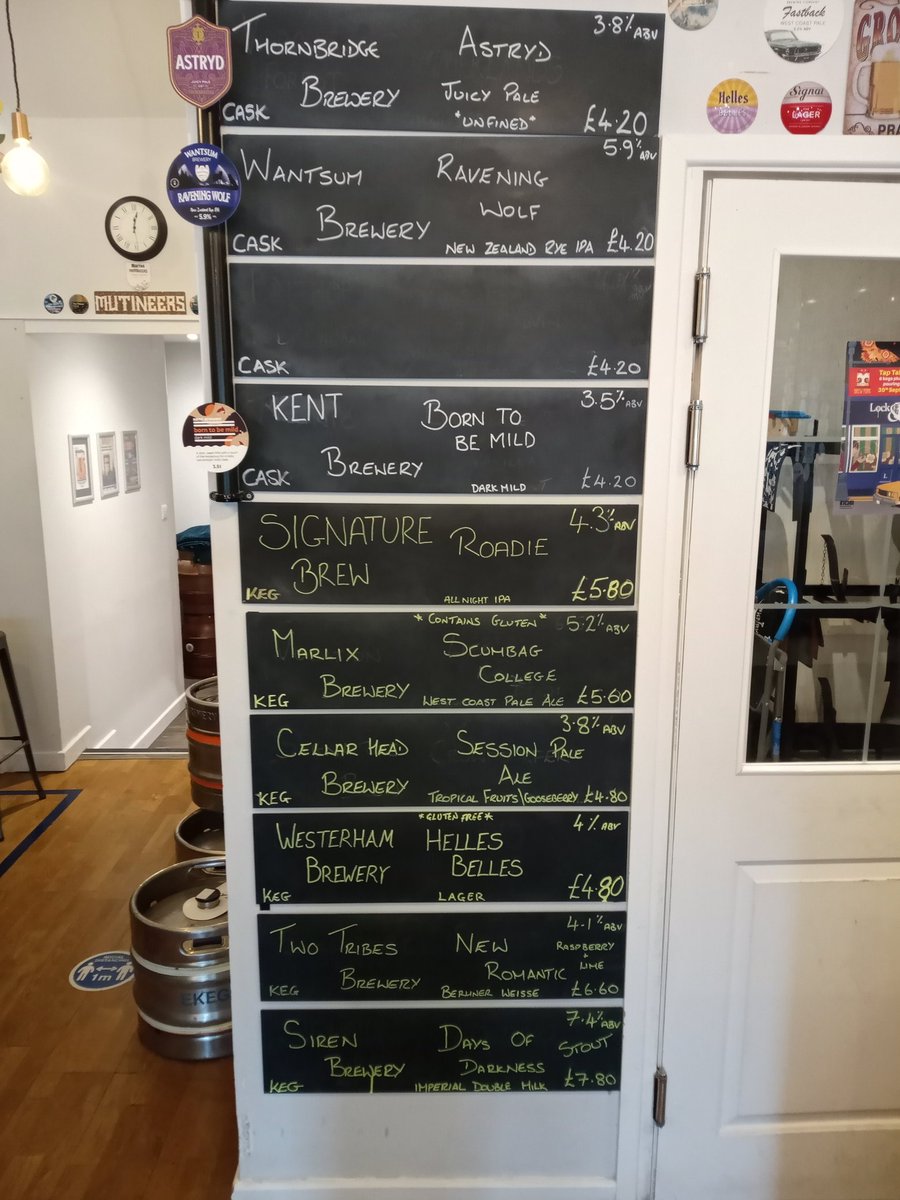 Fastback
WEST COAST PALE
Helles
BELLES
Signat
LAGER
PRA
ASTRYD
JUICY PALE
THORNBRIDGE ASTRYD 3.8% ABV
BREWERY JUICY PALE
CASK *UNFINED* £4.20
WANTSUM
BREWERY
RAVENING WOLF
New Zealand Rye IPA
~5.9%~
WANTSUM RAVENING 5.9% ABV
BREWERY WOLF
CASK NEW ZEALAND RYE IPA £4.20
MUTINEERS
CASK £4.20
born to be mild
dark mild
3.5%
KENT BORN TO 3.5% ABV
BREWERY BE MILD
CASK DARK MILD £4.20
Tap Ta
SIGNATURE ROADIE 4.3% ABV
BREW
KEG ALL NIGHT IPA £5.80
*CONTAINS GLUTEN* 5.2% ABV
MARLIX SCUMBAG
BREWERY COLLEGE
KEG WEST COAST PALE ALE £5.60
3.8% ABV
CELLAR HEAD SESSION PALE
BREWERY ALE
KEG TROPICAL FRUITS\GOOSEBERRY £4.80
*GLUTEN FREE* 4% ABV
WESTERHAM HELLES
BREWERY BELLES
KEG LAGER £4.80
4.1% ABV
TWO TRIBES NEW RASPBERRY
+ LIME
BREWERY ROMANTIC
KEG BERLINER WEISSE £6.60
EKEG
1m
7.4% ABV
SIREN DAYS OF STOUT
BREWERY DARKNESS
KEG IMPERIAL DOUBLE MILK £7.80